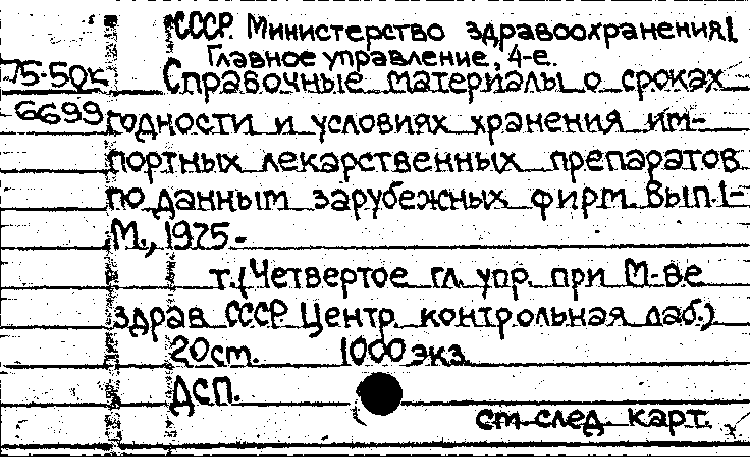 СССР. Министерство здравоохранения.
Главное управление, 4-е.
75-50к Справочные материалы о сроках
6699 годности и условиях хранения им-
портных лекарственных препаратов
по данным зарубежных фирм. Вып. 1-
М., 1975.-
т. (Четвертое гл. упр. при М-ве
здрав. СССР. Центр. контрольная лаб.)
20 см. 1000 экз.
ДСП.
см. след. карт.